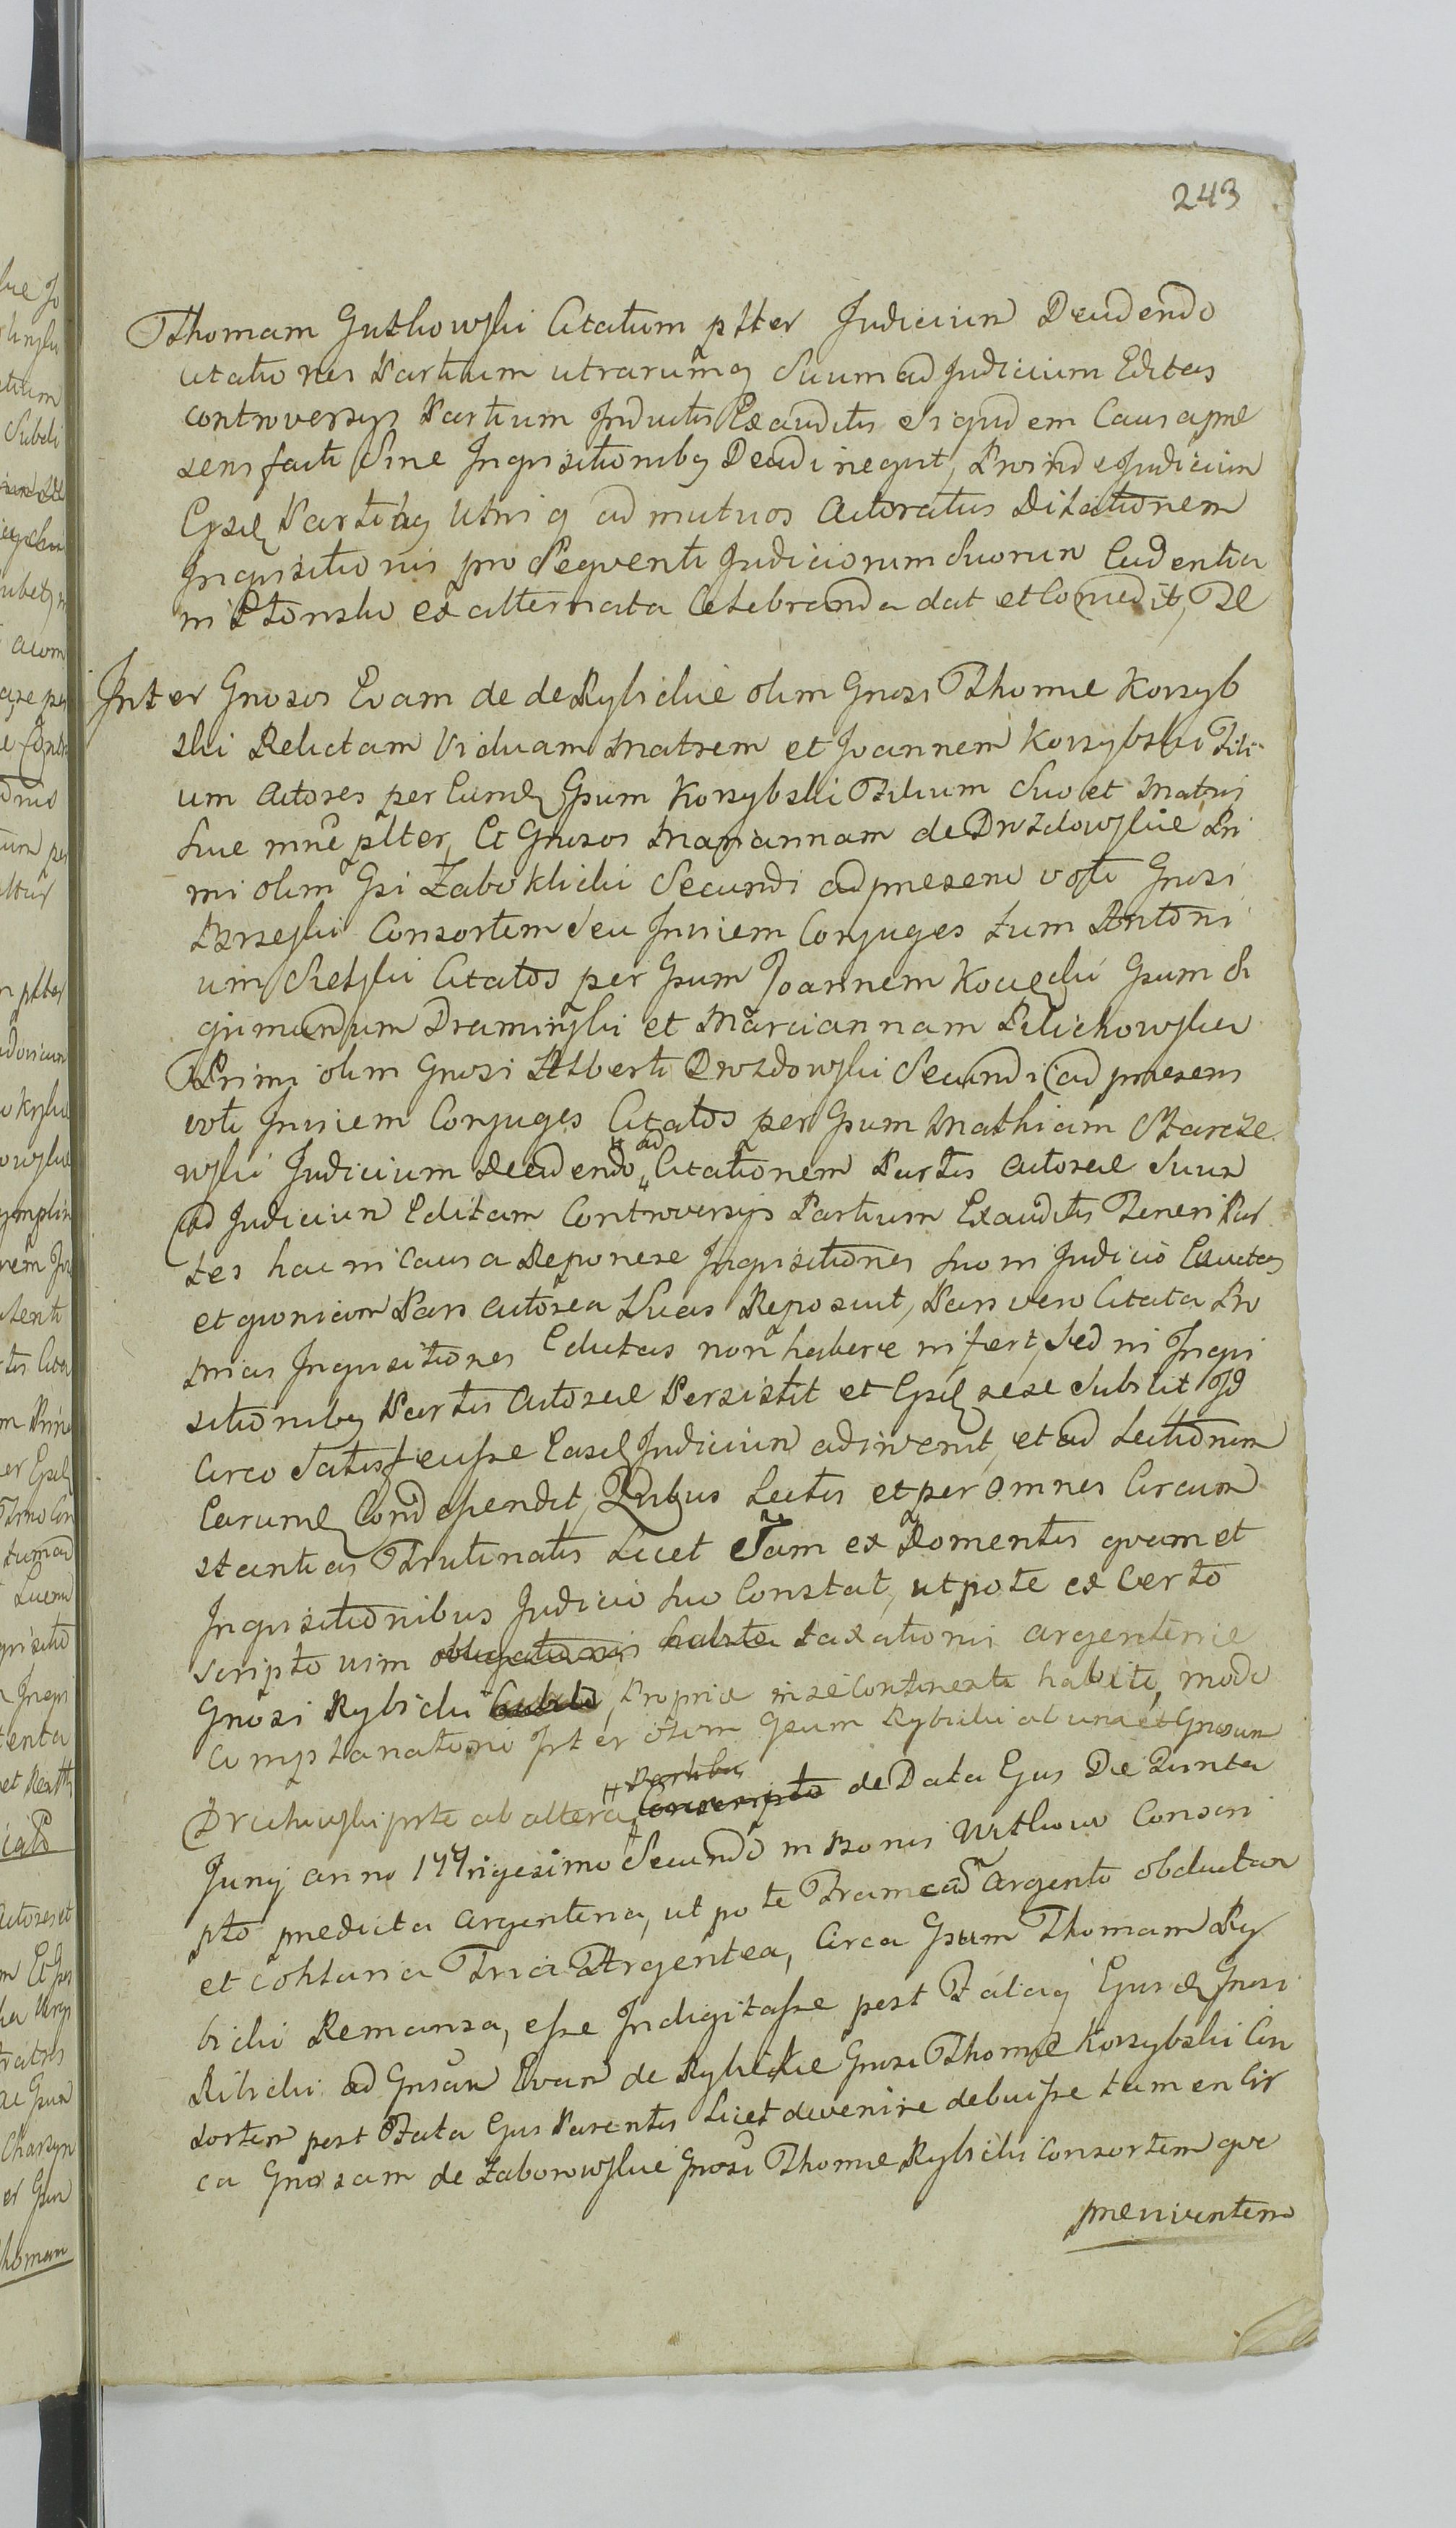 243
Thomam Gutkowski Citatum ptter Judicium Decidendo
Citationes Partium utrarumq Suum ad Judicium Editas
controversys Partium Inductis Exauditis siquidem Causa pre
sens facti Sine Inquisitionibq Decidi nequit, Proinde Judicium
Eysd Partibq Utrisq ad mutuos Actoratus Dilationem
Inquisitionis pro Sequenti Judiciorum Suorum Cadentia
in Płonsko ex alternata Celebranda dat et Concedit, Sal
Inter Gnosos Evam de de Rybickie olim Gnosi Thomae Korzyb
ski Relictam Viduam Matrem et Joannem Korzybski Fili
um Actores per Eumd Gsum Korzybski Filium Suo et Matris
Suae nnē ptter, Et Gnosos Mariannam de Drozdowskie Pri
mi olim Gsi Zaboklicki Secundi ad presens voti Gnosi
Brzeski Consortem Seu Invicem Conjuges tum Antoni
um Citatos per Gsum Joannem Gsum Si
gismundum Draminski et Marciannam Pilichowska
Primi olim Gnosi Alberti Drozdowski Secundi ad praesens
voti Invicem Conjuges Citatos per Gsum Mathiam Starcze
wski Judicium Decidendo ad Citationem Partis Actoreae Suum
ad Judicium Editam Controversys Partium Exauditis Teneri Par
tes hac in Causa Reponere Inquisitiones suo in Judicio Eductas
et quoniam Pars Actorea Suas Reposuit, Pars vero Citata Pro
prias Inquisitiones Eductas non habere infert, Sed in Inqui
sitionibq Partis Actoreae Persistit et Eysd sese Subycit Id
Circo Satisfecisse Easd Judicium adinvenit, et ad Lectionem
Earumd Condescendit, Quibus Lectis et per omnes Circum
stantias Trutinatis Licet Tam ex Domentis quam et
Inquisitionibus Judicio Suo Constat, utpote ex certo
scripto vim obligationis taxationis argenteriae
Gnosi Rybicki Propria in se Continenti habiti, modo
Complanationis Inter olim Gsum Rybicki ab una et Gnosum
Druchowski prte ab altera Partibus Conscripto de Data Ejus Die Quinta
Juny anno 177 rigesimo Secundo in Bonis Witkowo Conscri
pto predicta argenteria, utpote Frameam Argento obductam
et cohlaria Tria Argentea, Circa Gsum Thomam Ry
bicki Remansa, esse Indigitasse post Fataq Ejusd Gnosi
Ribicki ad Gnsam Evam de Rybickie Gnosi Thomae Korzybski Con
sortem post Fata Ejus Parentis Licet devenire debuisse tamen Cir
ca Gnosam de Zaborowskie Gnosi Thomae Rybicki Consortem que
previventem